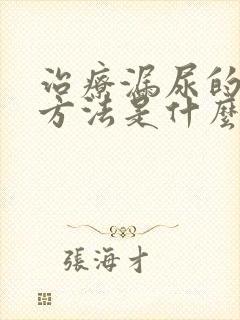 治療漏尿的
方法是什麼
張海才